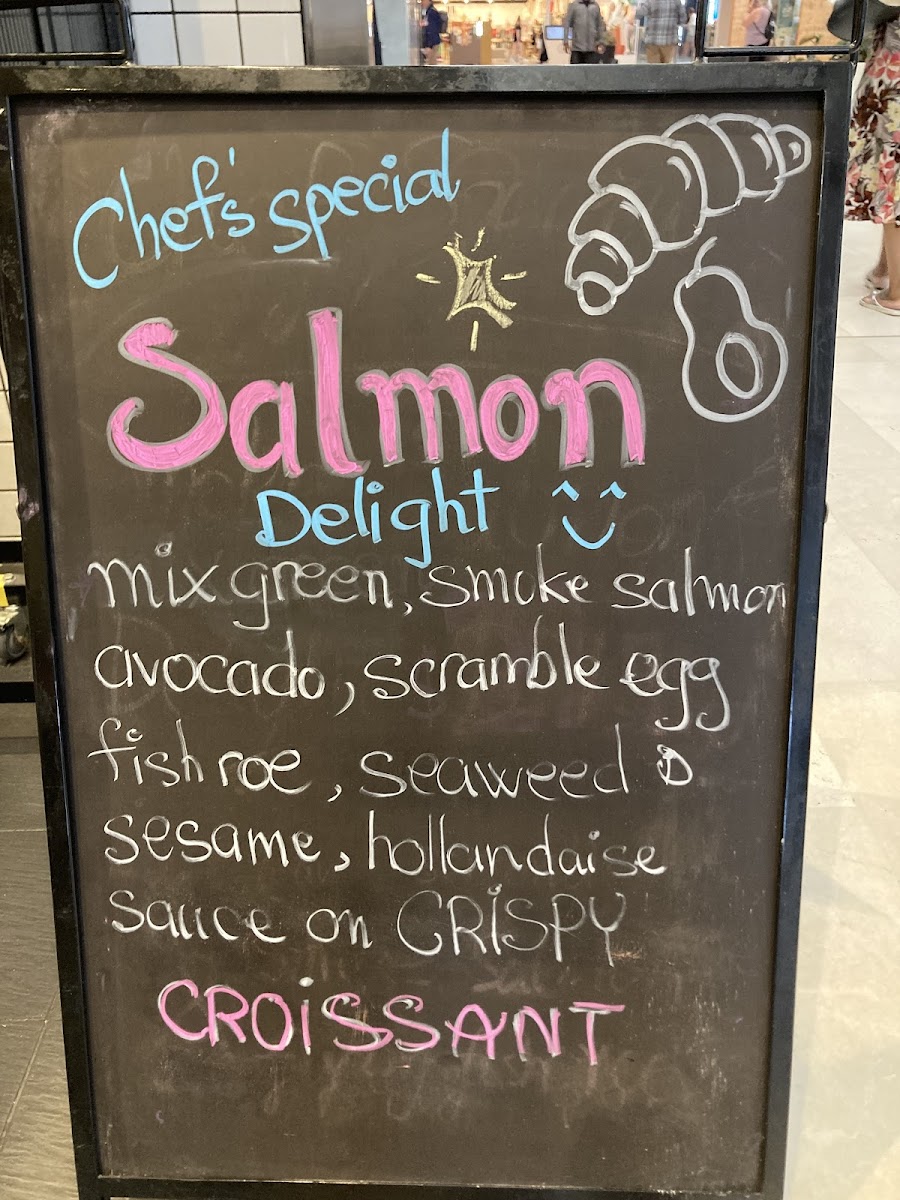 Chef's special
Salmon
Delight
mix green, smoke salmon
avocado, scramble egg
fish roe, seaweed &
sesame, hollandaise
sauce on CRISPY
CROISSANT